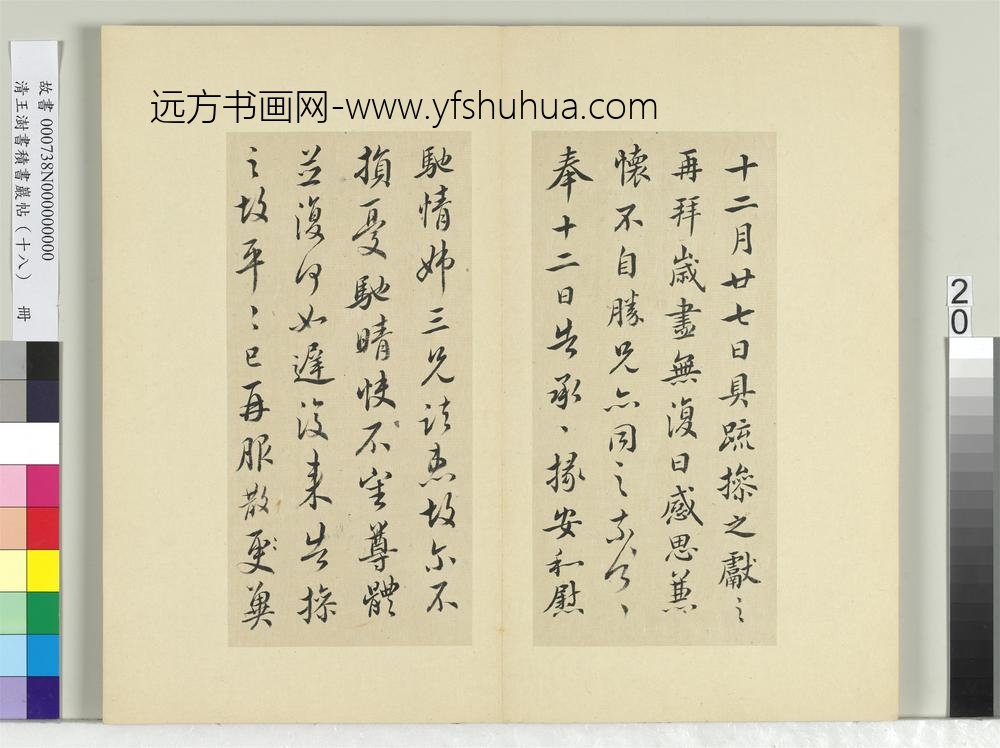 远方书画网-www.yfshuhua.com
故書 000738N000000000
清王澍書積書巖帖（十八） 冊
20
十二月廿七日具疏操之獻之
再拜歲盡無復日感思兼
懷不自勝兄亦同之
奉十二日告承、掾安和慰
馳情姊三兄諸患故尔不
損憂馳晴快不審尊體
並復何如遲復來告操
之故平二巳再服散更